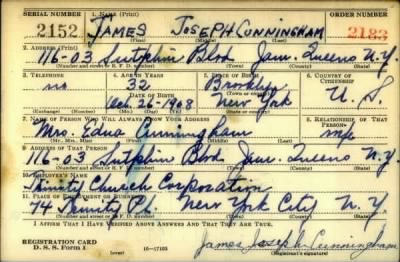 SERIAL NUMBER 1. NAME (Print) ORDER NUMBER
2152 JAMES JOSEPH CUNNINGHAM 2183
(First) (Middle) (Last)
2. ADDRESS (Print)
116-03 Sutphin Blvd Jam. Queens N.Y.
(Number and street or R. F. D. number) (Town) (County) (State)
3. TELEPHONE 4. AGE IN YEARS 5. PLACE OF BIRTH 6. COUNTRY OF CITIZENSHIP
no 32 Brooklyn
DATE OF BIRTH (Town or county)
Oct. 26-1908 New York U. S.
(Exchange) (Number) (Mo.) (Day) (Yr.) (State or country)
7. NAME OF PERSON WHO WILL ALWAYS KNOW YOUR ADDRESS 8. RELATIONSHIP OF THAT PERSON
Mrs. Edna Cunningham wife
(Mr., Mrs., Miss) (First) (Middle) (Last)
9. ADDRESS OF THAT PERSON
116-03 Sutphin Blvd Jam. Queens N.Y.
(Number and street or R. F. D. number) (Town) (County) (State)
10. EMPLOYER'S NAME
Trinity Church Corporation
11. PLACE OF EMPLOYMENT OR BUSINESS
74 Trinity Pl. New York City N.Y.
(Number and street or R. F. D. number) (Town) (County) (State)
I AFFIRM THAT I HAVE VERIFIED ABOVE ANSWERS AND THAT THEY ARE TRUE.
REGISTRATION CARD
D. S. S. Form 1 (over) 16-17105 James Joseph Cunningham
(Registrant's signature)